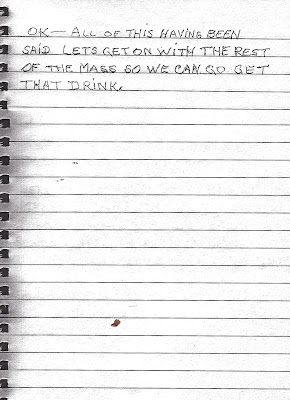 OK — ALL OF THIS HAVING BEEN
SAID LETS GET ON WITH THE REST
OF THE MASS SO WE CAN GO GET
THAT DRINK.